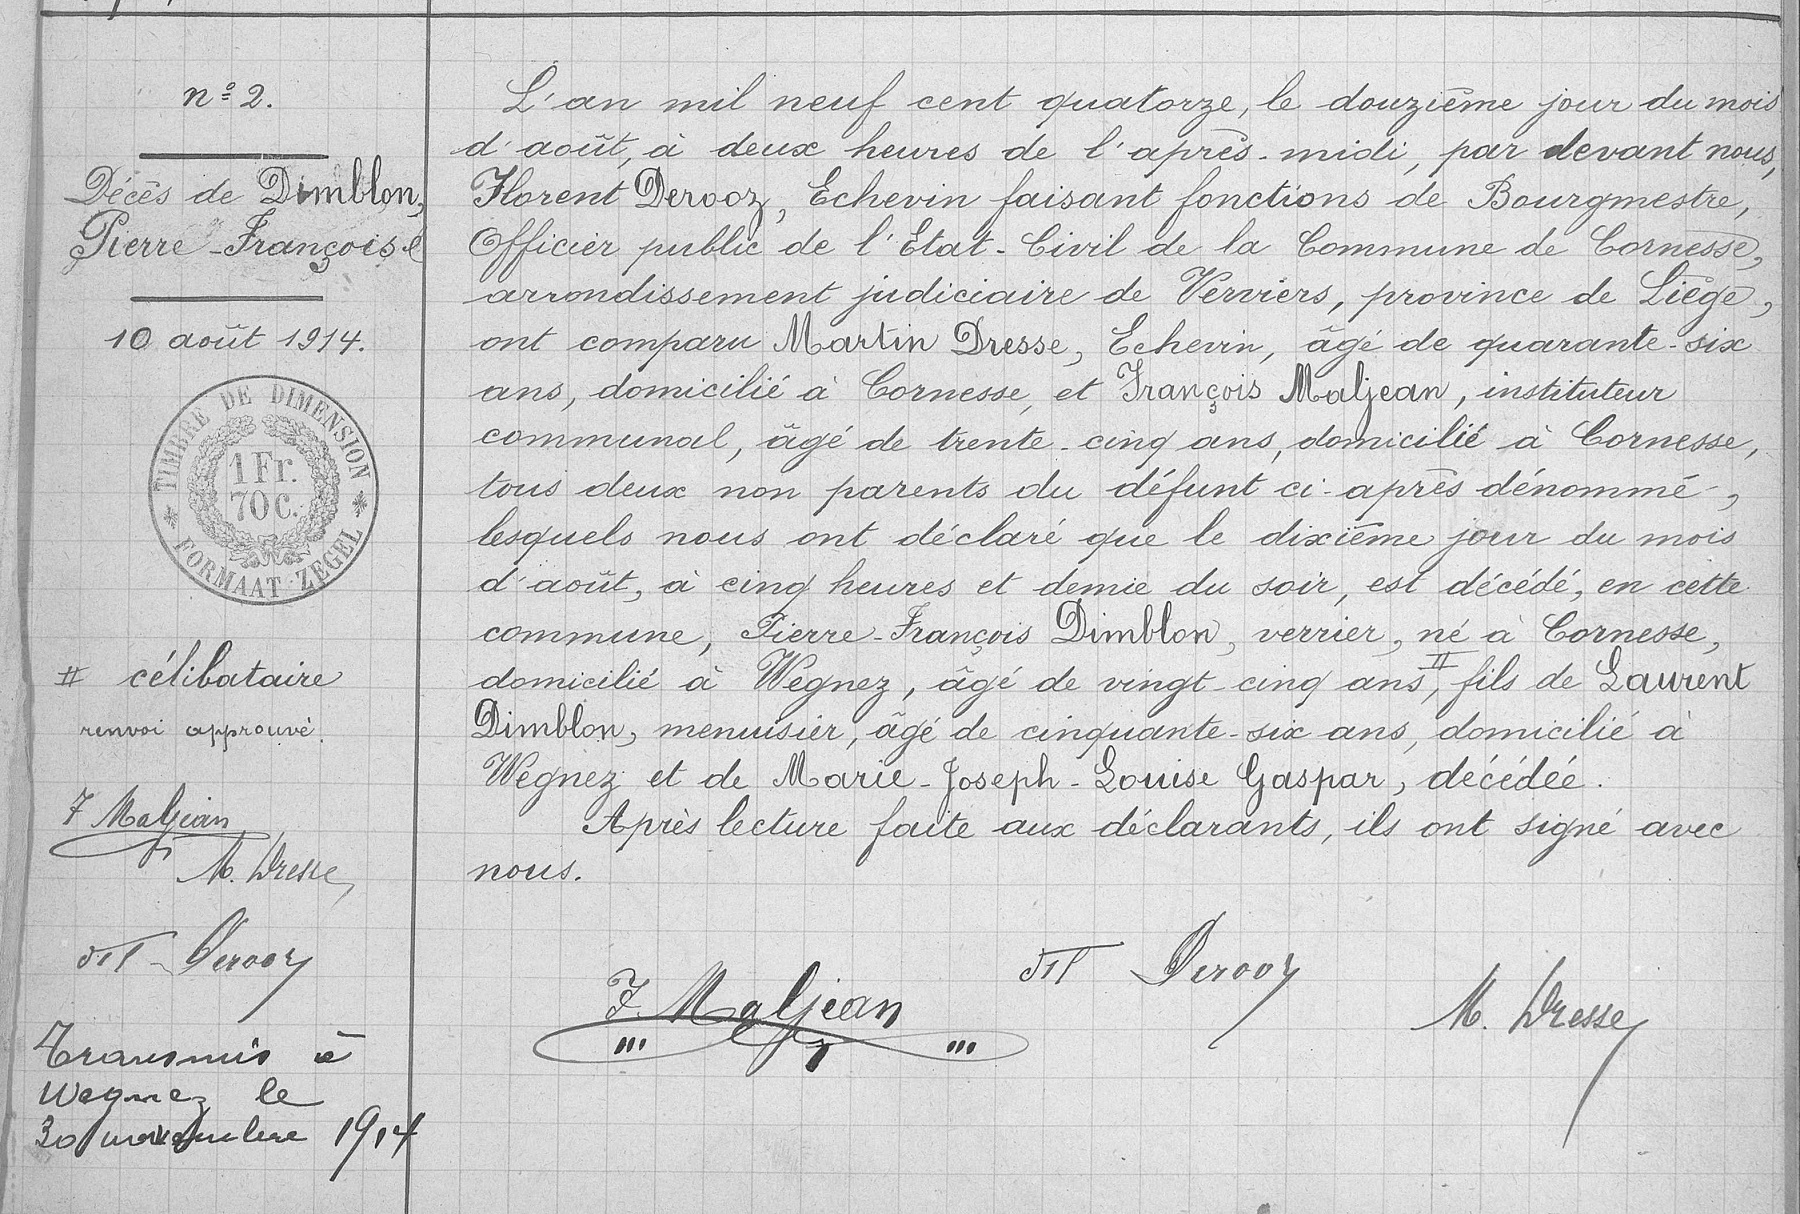 n° 2.
Décès de Dimblon,
Pierre-François
10 août 1914.
TIMBRE DE DIMENSION
1 Fr.
70 C.
FORMAAT-ZEGEL
# célibataire
renvoi approuvé.
F Maljean
M. Dresse
Derooz
Transmis à
Wegnez le
30 novembre 1914
L'an mil neuf cent quatorze, le douzième jour du mois
d'août, à deux heures de l'après-midi, par devant nous,
Florent Derooz, Echevin faisant fonctions de Bourgmestre,
Officier public de l'Etat-Civil de la Commune de Cornesse,
arrondissement judiciaire de Verviers, province de Liège,
ont comparu Martin Dresse, Echevin, âgé de quarante-six
ans, domicilié à Cornesse, et François Maljean, instituteur
communal, âgé de trente-cinq ans, domicilié à Cornesse,
tous deux non parents du défunt ci-après dénommé,
lesquels nous ont déclaré que le dixième jour du mois
d'août, à cinq heures et demie du soir, est décédé, en cette
commune, Pierre-François Dimblon, verrier, né à Cornesse,
domicilié à Wegnez, âgé de vingt-cinq ans #, fils de Laurent
Dimblon, menuisier, âgé de cinquante-six ans, domicilié à
Wegnez et de Marie-Joseph-Louise Gaspar, décédée.
Après lecture faite aux déclarants, ils ont signé avec
nous.
F. Maljean
Derooz
M. Dresse